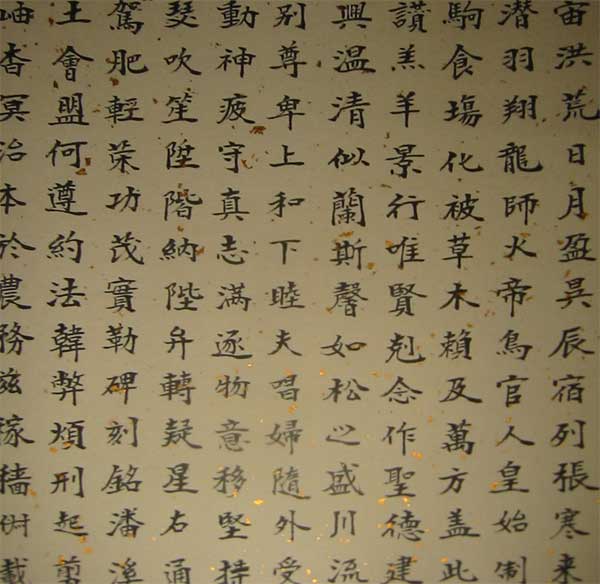 宙洪荒日月盈昃辰宿列張寒来
潜羽翔龍師火帝鳥官人皇始制
駒食塲化被草木賴及萬方盖此
讃羔羊景行唯賢剋念作聖德建
興温清似蘭斯馨如松之盛川流
别尊卑上和下睦夫唱婦隨外受
動神疲守真志滿逐物意移堅持
瑟吹笙陞階納陛弁轉疑星右通
駕肥輕策功茂實勒碑刻銘潘溪
土會盟何遵約法韓弊煩刑起翦
岫杳冥治本於農務兹稼穡俶載